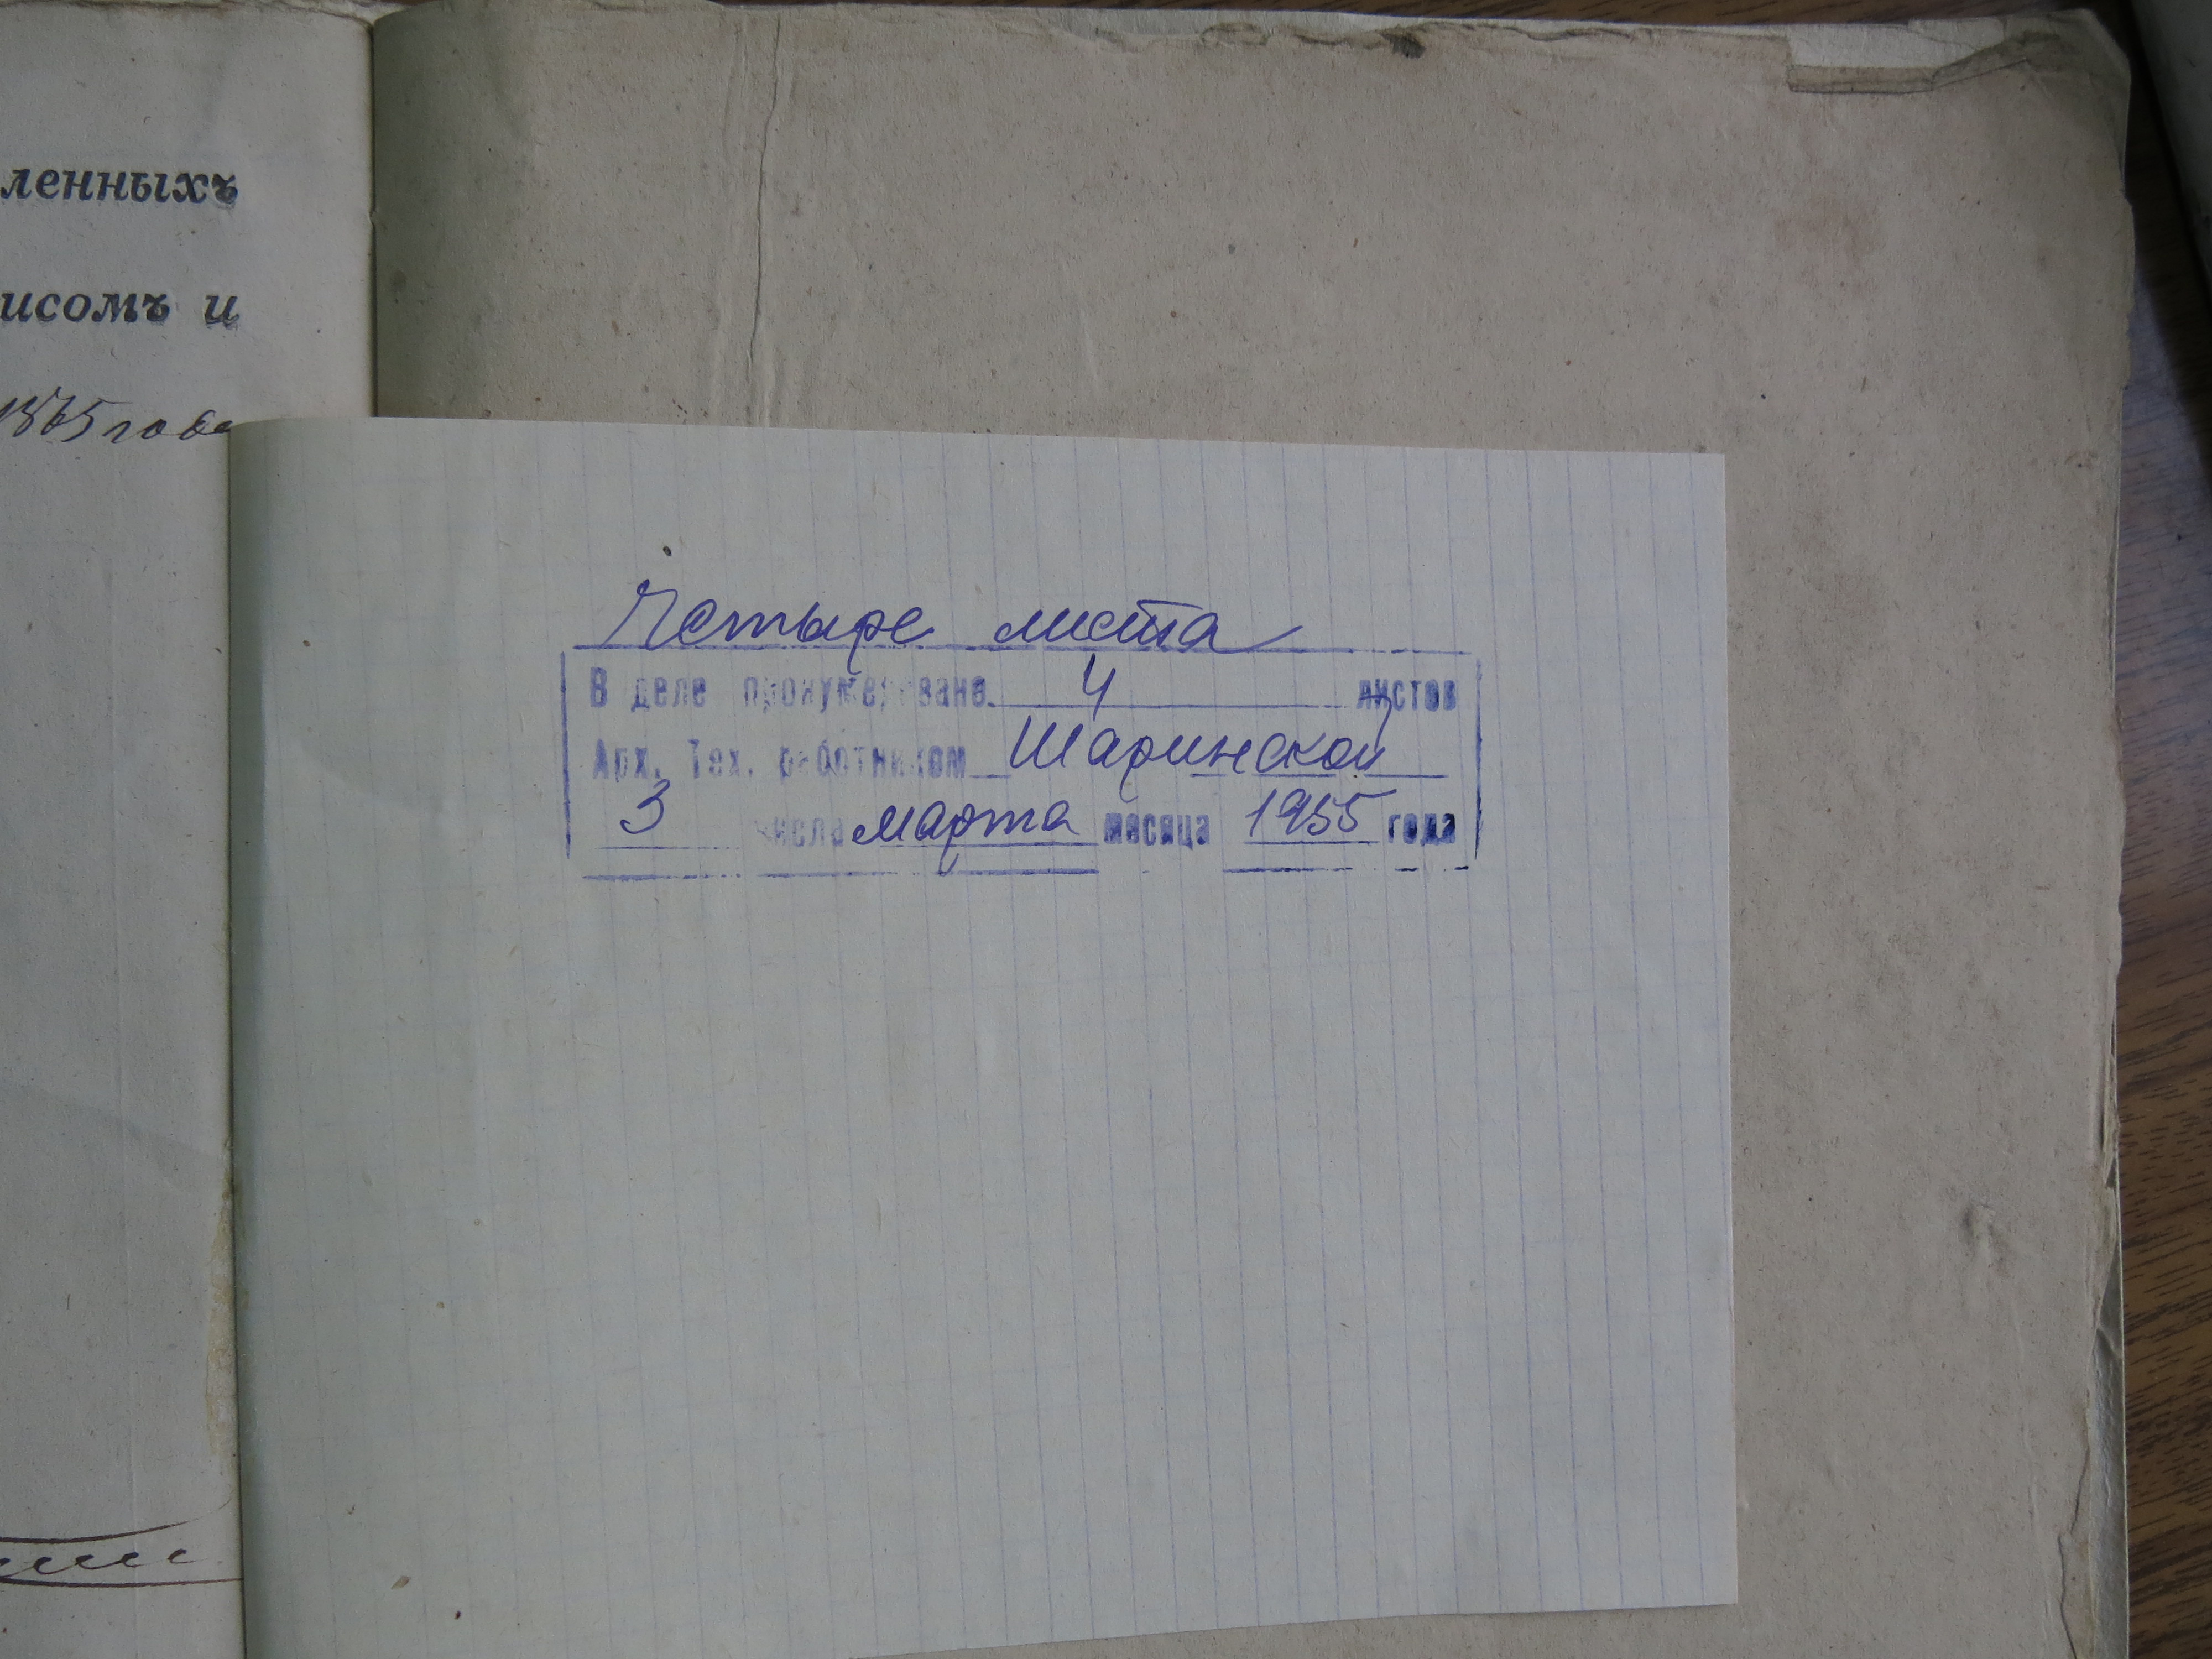 ленныхъ
исомъ и
1865 года
Четыре листа
В деле пронумеровано 4 листов
Арх. Тех. работником Шаринской
3 числа марта месяца 1955 года